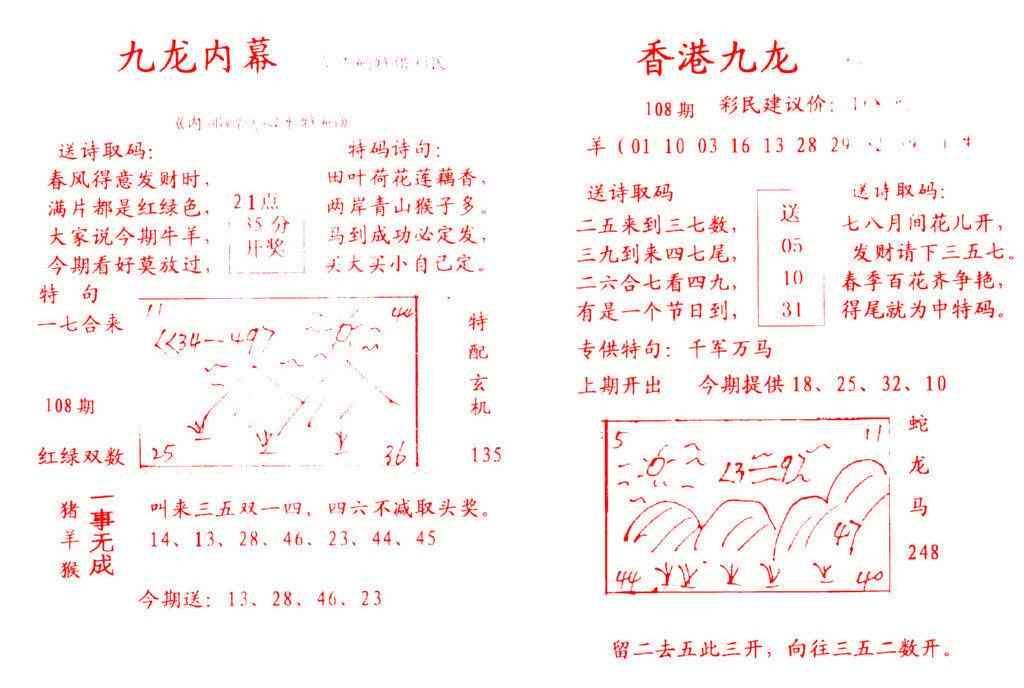 九龙内幕
送诗取码：
春风得意发财时，
满片都是红绿色，
大家说今期牛羊，
今期看好莫放过，
21点
35分
开奖
特码诗句：
田叶荷花莲藕香，
两岸青山猴子多。
马到成功必定发，
买大买小自己定。
特 句
一七合来
108期
红绿双数
11
44
34-49
25
36
特配玄机
135
猪羊猴
一事无成
叫来三五双一四，四六不减取头奖。
14、13、28、46、23、44、45
今期送：13、28、46、23
香港九龙
108期 彩民建议价：
羊（01 10 03 16 13 28 29
送诗取码
二五来到三七数，
三九到来四七尾，
二六合七看四九，
有是一个节日到，
送
05
10
31
送诗取码：
七八月间花儿开，
发财请下三五七。
春季百花齐争艳，
得尾就为中特码。
专供特句：千军万马
上期开出 今期提供18、25、32、10
5
11
47
44
40
蛇
龙
马
248
留二去五此三开，向往三五二数开。